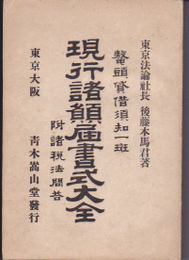 東京法論社長 後藤本馬君著
鼇頭貸借須知一斑
現行諸願届書式大全
附諸税法問答
東京大阪 青木嵩山堂發行